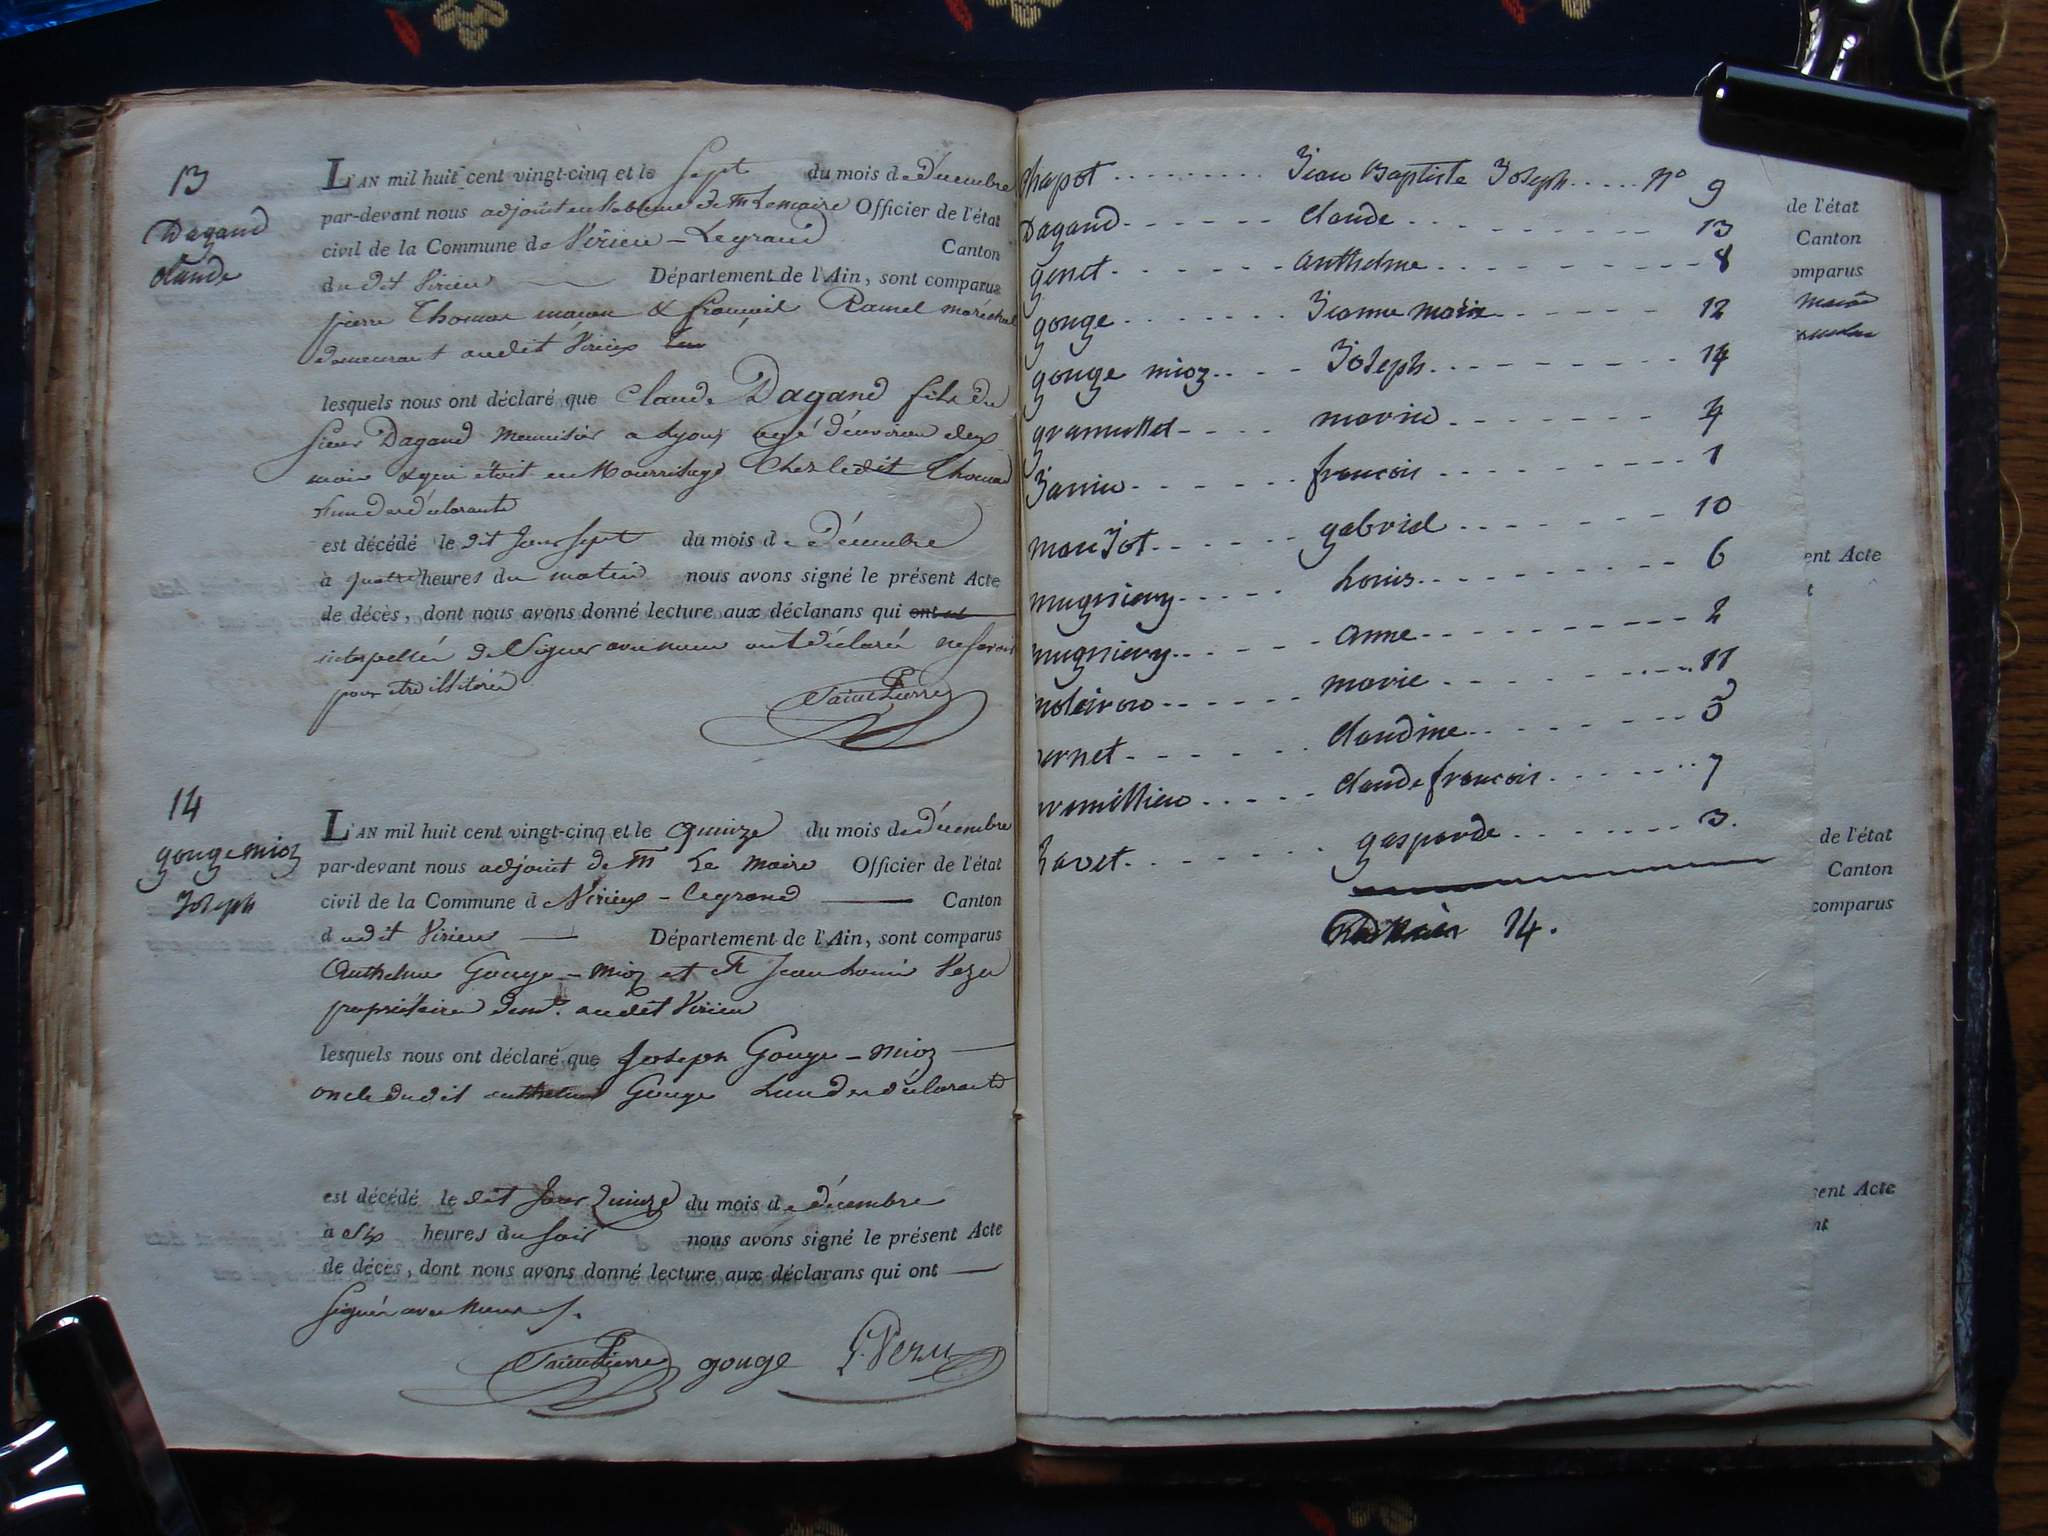 13
Dagand
Claude
L'AN mil huit cent vingt-cinq et le Sept du mois de Décembre
par-devant nous adjoint en l'absence de Mr Lemaire Officier de l'état
civil de la Commune de Virieu - Legrand Canton
du dit Virieu Département de l'Ain, sont comparus
pierre Thomas maçon & françois Ramel maréchal
demeurant audit Virieu
lesquels nous ont déclaré que Claude Dagand fils du
sieur Dagand Menuisier a Lyon, agé d'environ deux
mois & qui étoit en Nourrisage Chez ledit Thomas
l'un des déclarants
est décédé le dit Jour Sept du mois de Décembre
à quatre heures du matin nous avons signé le présent Acte
de décès, dont nous avons donné lecture aux déclarans qui ont
interpellés de Signer avec nous ont déclarés ne savoir
pour etre illitérés
SaintPierre
14
gouge mioz
Joseph
L'AN mil huit cent vingt-cinq et le quinze du mois de Décembre
par-devant nous adjoint de Mr Le Maire Officier de l'état
civil de la Commune de Virieux - legrand Canton
dudit Virieu Département de l'Ain, sont comparus
Anthelme Gouge - Mioz et Jean Louis Vezu
propriétaires demt. audit Virieu
lesquels nous ont déclaré que Joseph Gouge - Mioz
oncle dudit anthelme Gouge L'un des déclarants
est décédé le dit Jour Quinze du mois de décembre
à Six heures du Soir nous avons signé le présent Acte
de décès, dont nous avons donné lecture aux déclarans qui ont
Signés avec Nous
SaintPierre gouge L. Vezu
Chapot Jean Baptiste Joseph No 9
Dagand Claude 13
genet anthelme 8
gouge Jeanne marie 12
gouge mioz Joseph 14
gramullet marie 4
Janin francois 1
manJot gabriel 10
mugniery Louis 6
mugniery anne 2
marie 11
vernet Claudine 5
Claude francois 7
Ravet gasparde 3.
14.
de l'état
Canton
omparus
ent Acte
de l'état
Canton
comparus
sent Acte
nt